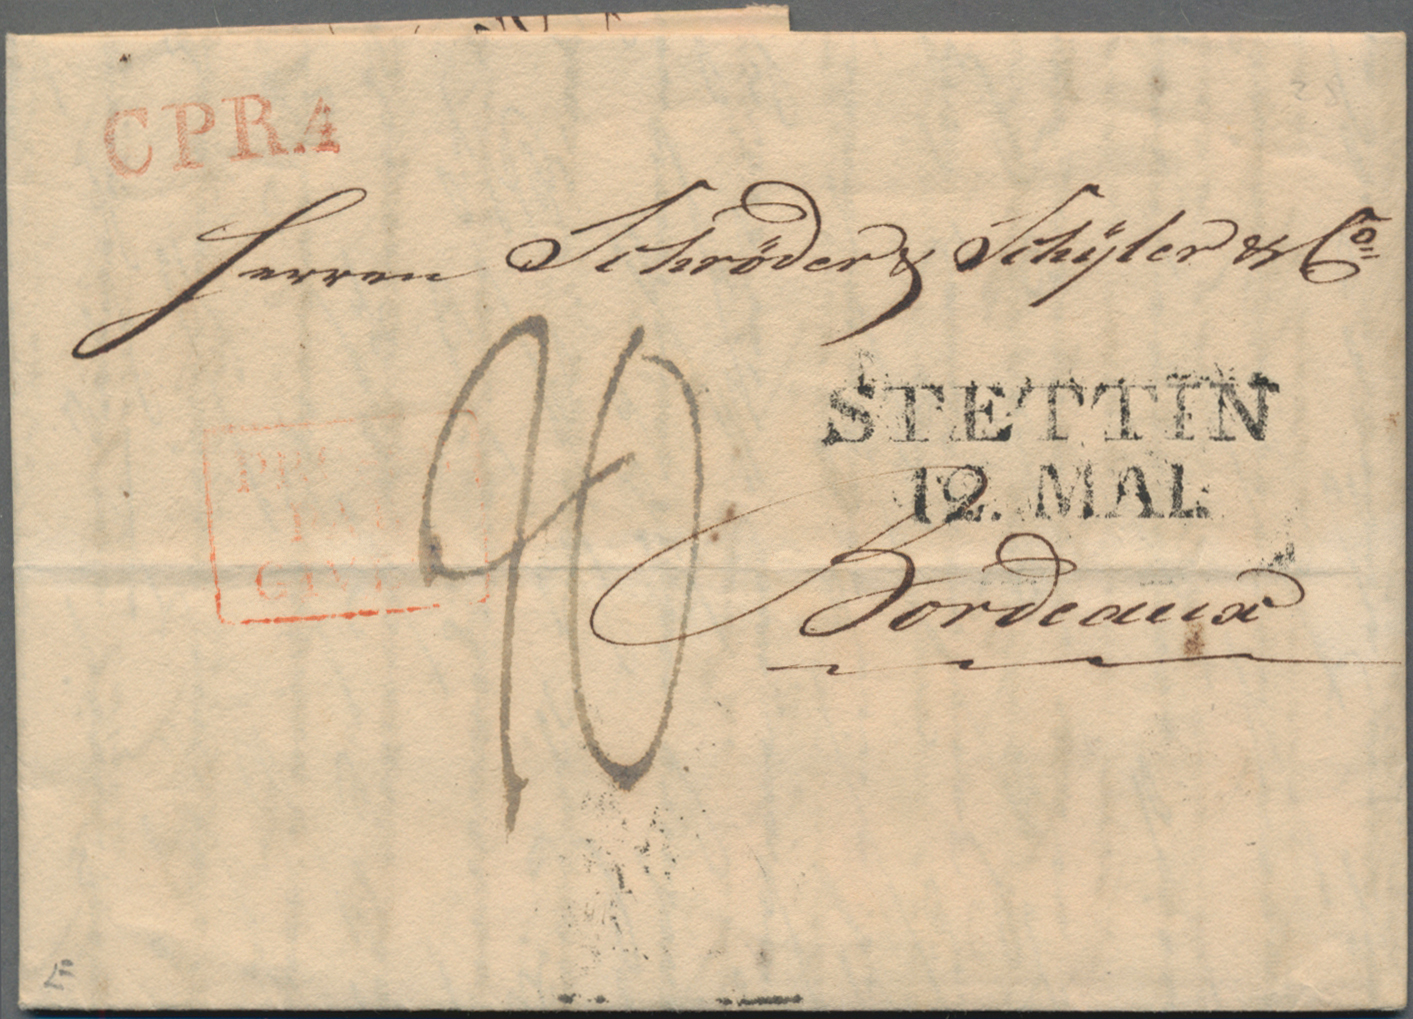 CPR.4
Herren Schröder & Schÿler & Co
STETTIN
12. MAI.
40
GIVE
Bordeaux